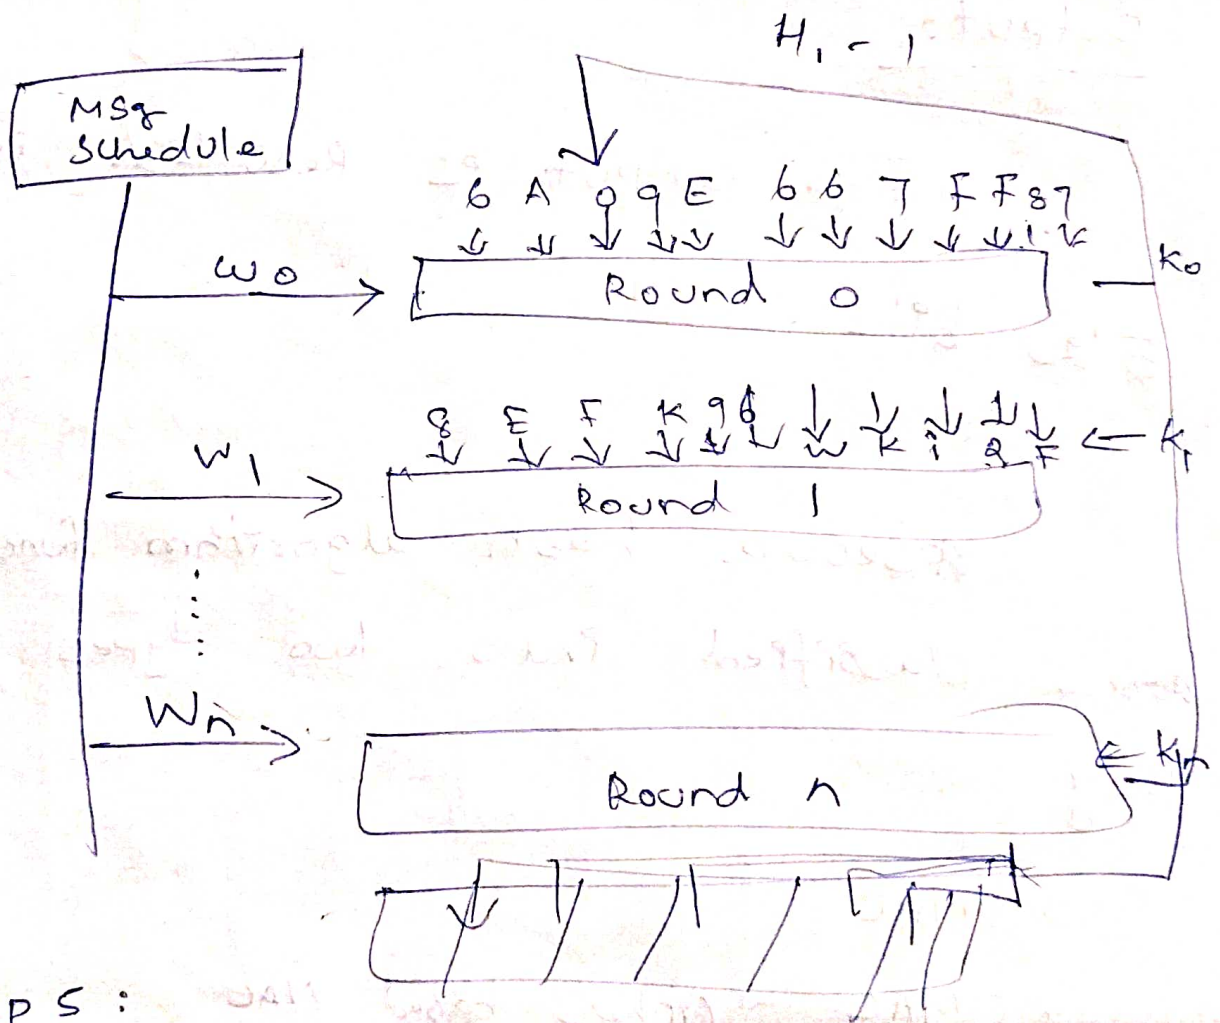 H, - 1
Msg
Schedule
6 A 0 9 E 6 6 7 F F 8 7
W0
K0
Round 0
8 E F K 9 6
W K i 2 F
K1
W1
Round 1
Wn
Kn
Round n
P S :